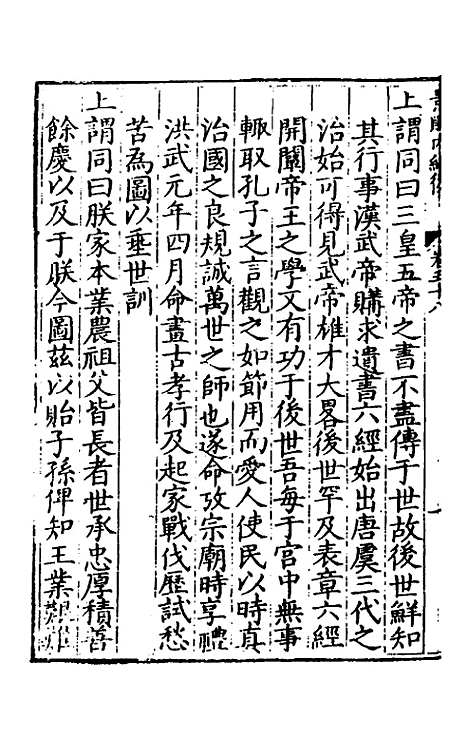 上謂同曰三皇五帝之書不盡傳于世故後世鮮知
其行事漢武帝購求遺書六經始出唐虞三代之
治始可得見武帝雄才大畧後世罕及表章六經
開闡帝王之學又有功于後世吾每于宮中無事
輙取孔子之言觀之如節用而愛人使民以時真
治國之良規誠萬世之師也遂命攷宗廟時享禮
洪武元年四月命畫古孝行及起家戰伐歷試愁
苦為圖以垂世訓
上謂同曰朕家本業農祖父皆長者世承忠厚積善
餘慶以及于朕今圖茲以貽子孫俾知王業艱難